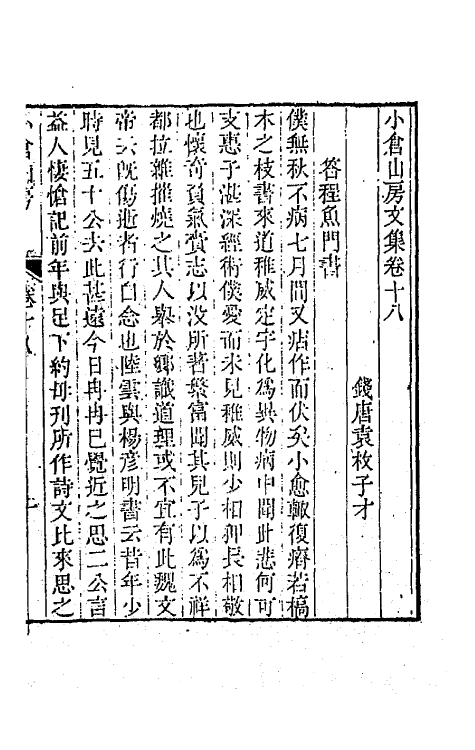 小倉山房文集卷十八
錢唐袁枚子才
答程魚門書
僕無秋不病七月間又痁作而伏矣小愈輒復瘠若槁
木之枝書來道稚威定宇化為異物病中聞此悲何可
支惠子湛深經術僕愛而未見稚威則少相狎長相敬
也懷奇負氣賫志以没所著繁富聞其兒子以為不祥
都拉雜摧燒之其人舉於鄉識道理或不宜有此魏文
帝云既傷逝者行自念也陸雲與楊彦明書云昔年少
時見五十公去此甚遠今日冉冉已覺近之思二公言
益人悽愴記前年與足下約毋刊所作詩文比來思之
小倉山房
卷十八